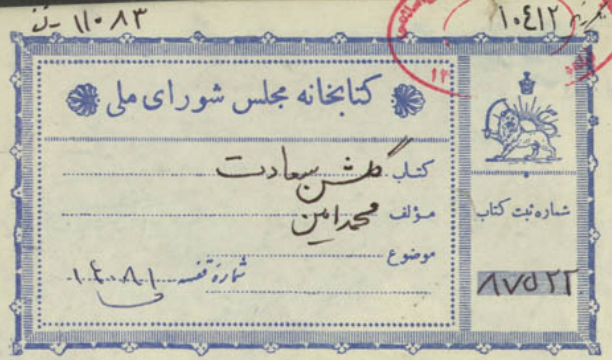 ۱۰۴۱۲
۱۱۰۸۳
کتابخانه مجلس شورای ملی
کتاب گلشن سعادت
مؤلف محمد امین
موضوع
شماره قفسه
شماره ثبت کتاب
۸۷۵۲۲